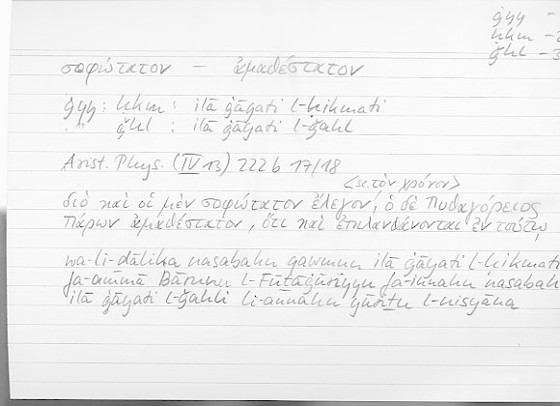 ġyy -
ḥkm -2
ǧhl -3
σοφώτατον — ἀμαθέστατον
ġyy : ḥkm : ilā ġāyati l-ḥikmati
" " ǧhl : ilā ġāyati l-ǧahl
Arist. Phys. (IV 13) 222 b 17/18
<sc. τὸν χρόνον>
διὸ καὶ οἱ μὲν σοφώτατον ἔλεγον, ὁ δὲ Πυθαγόρειος
Πάρων ἀμαθέστατον, ὅτι καὶ ἐπιλανθάνονται ἐν τούτῳ,
wa-li-ḏālika nasabahu qawmun ilā ġāyati l-ḥikmati
fa-ammā Bārūnu l-Fūṯāġūriyyu fa-innahu nasabahū
ilā ġāyati l-ǧahli li-annahu yūriṯu l-nisyāna